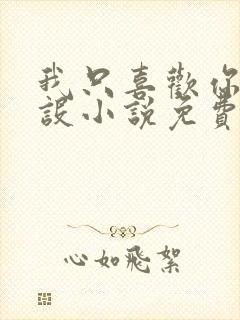 我只喜歡你
設小說免費
心如飛絮